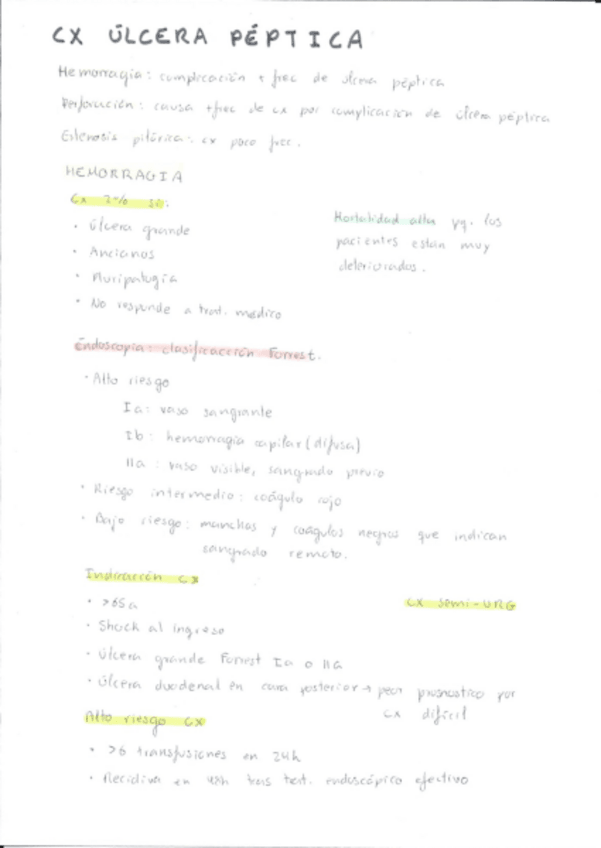 CX ÚLCERA PÉPTICA
Hemorragia: complicación + frec de úlcera péptica
Perforación: causa +frec de cx por complicación de úlcera péptica
Estenosis pilórica: cx poco frec.
HEMORRAGIA
Cx si:
· Úlcera grande
· Ancianos
· Pluripatología
· No responde a trat. médico
Mortalidad alta pq. los
pacientes están muy
deteriorados.
Endoscopia: clasificacción Forrest.
· Alto riesgo
Ia: vaso sangrante
Ib: hemorragia capilar (difusa)
IIa: vaso visible, sangrado previo
· Riesgo intermedio: coágulo rojo
· Bajo riesgo: manchas y coágulos negros que indican
sangrado remoto.
Indicacción cx
· >65a
· Shock al ingreso
· Úlcera grande Forrest Ia o IIa
· Úlcera duodenal en cara posterior → peor pronostico por
cx difícil
CX semi-URG
Alto riesgo cx
· >6 transfusiones en 24h
· Recidiva en 48h tras endoscópico efectivo